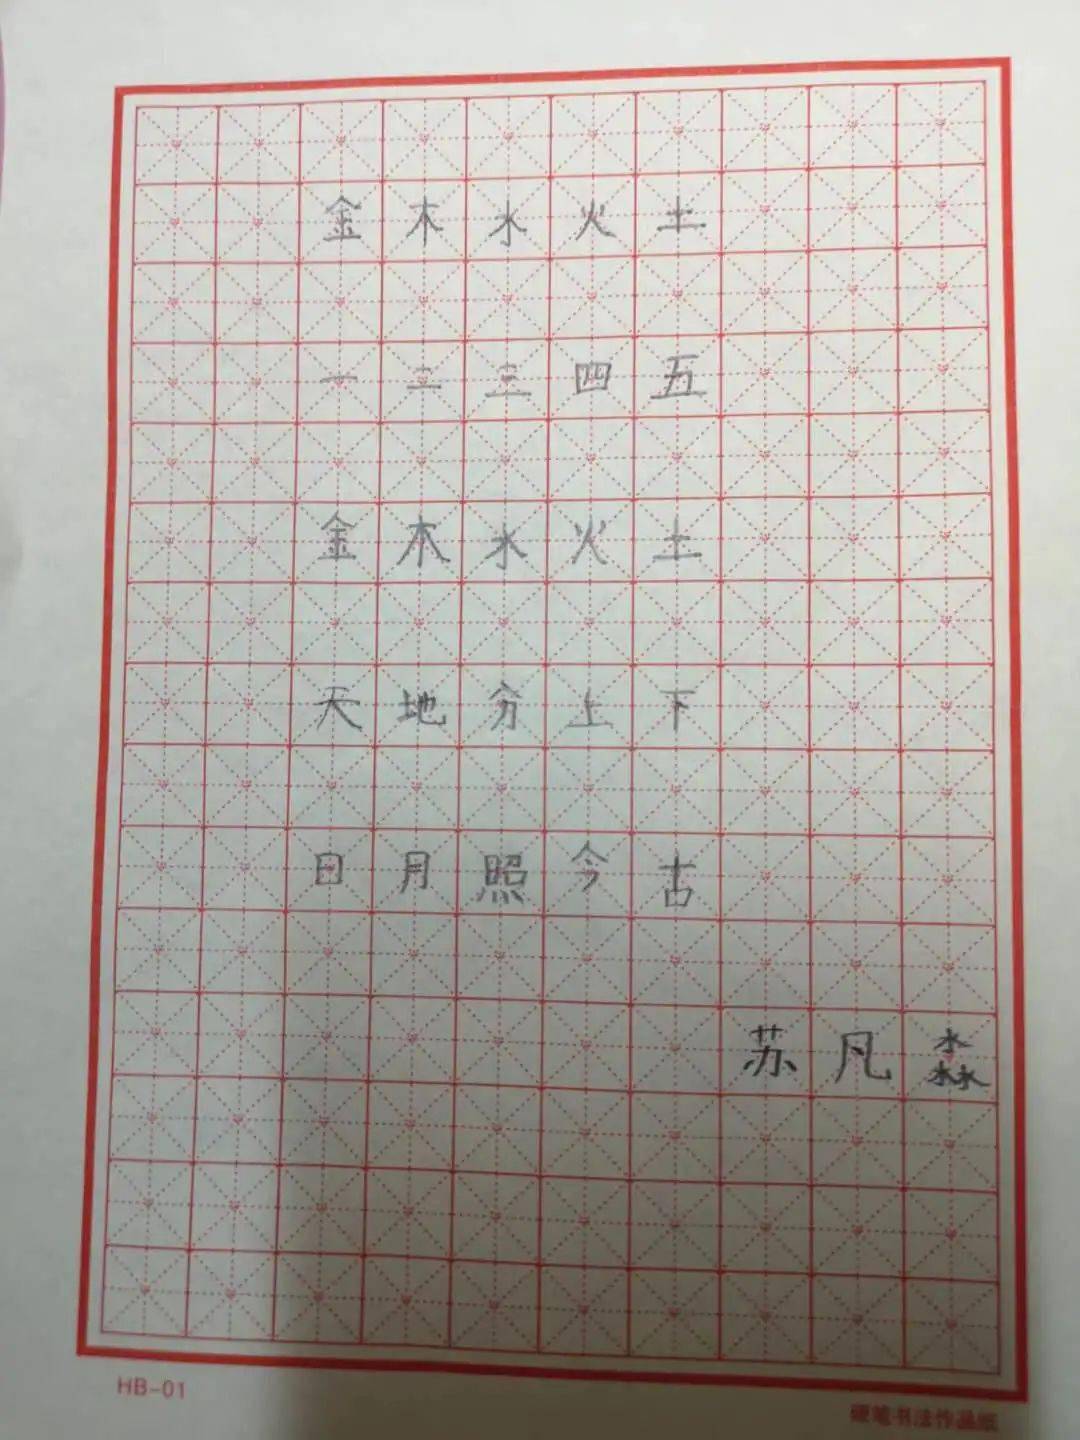 金木水火土
一二三四五
金木水火土
天地分上下
日月照今古
苏凡淼
HB-01
硬笔书法作品纸